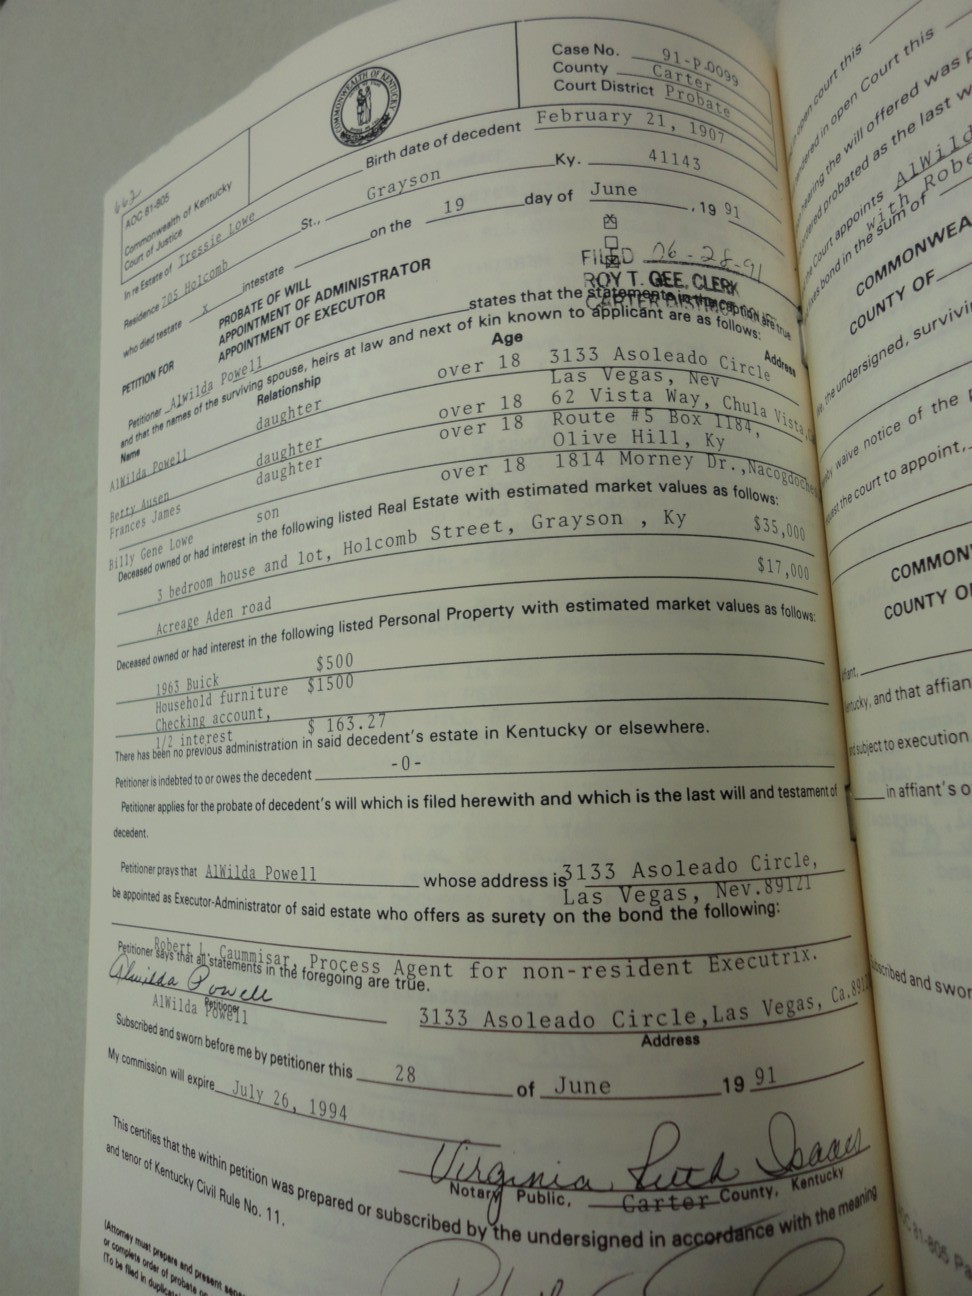 662
AOC 81-805
Commonwealth of Kentucky
Court of Justice
COMMONWEALTH OF KENTUCKY
Case No. 91-P-0099
County Carter
Court District Probate
In re Estate of Tressie Lowe Birth date of decedent February 21, 1907
Residence 205 Holcomb St., Grayson Ky. 41143
who died testate x intestate on the 19 day of June , 19 91
PETITION FOR
PROBATE OF WILL
APPOINTMENT OF ADMINISTRATOR
APPOINTMENT OF EXECUTOR
FILED 06-28-91
ROY T. GEE, CLERK
CARTER
Petitioner Alwilda Powell states that the statements in the caption are true
and that the names of the surviving spouse, heirs at law and next of kin known to applicant are as follows:
Name Relationship Age Address
AlWilda Powell daughter over 18 3133 Asoleado Circle
Las Vegas, Nev
Betty Ausen daughter over 18 62 Vista Way, Chula Vista,
Frances James daughter over 18 Route #5 Box 1184,
Olive Hill, Ky
Billy Gene Lowe son over 18 1814 Morney Dr.,Nacogdoches
Deceased owned or had interest in the following listed Real Estate with estimated market values as follows:
3 bedroom house and lot, Holcomb Street, Grayson , Ky $35,000
Acreage Aden road $17,000
Deceased owned or had interest in the following listed Personal Property with estimated market values as follows:
1963 Buick $500
Household furniture $1500
Checking account,
1/2 interest $ 163.27
There has been no previous administration in said decedent's estate in Kentucky or elsewhere.
Petitioner is indebted to or owes the decedent -0-
Petitioner applies for the probate of decedent's will which is filed herewith and which is the last will and testament of
decedent.
Petitioner prays that AlWilda Powell whose address is 3133 Asoleado Circle,
Las Vegas, Nev.89121
be appointed as Executor-Administrator of said estate who offers as surety on the bond the following:
Robert L. Caummisar, Process Agent for non-resident Executrix.
Petitioner says that all statements in the foregoing are true.
Alwilda Powell
Petitioner
AlWilda Powell
3133 Asoleado Circle,Las Vegas, Ca.891
Address
Subscribed and sworn before me by petitioner this 28 of June 19 91
My commission will expire July 26, 1994
Virginia Ruth Isaacs
Notary Public, Carter County, Kentucky
This certifies that the within petition was prepared or subscribed by the undersigned in accordance with the meaning
and tenor of Kentucky Civil Rule No. 11.
(Attorney must prepare and present
or complete order of probate
(To be filed in duplicate
open court this
in open Court this
hearing the will offered was
probated as the last
Court appoints AlWild
with Robe
bond in the sum of
COMMONWEA
COUNTY OF
the undersigned, survivi
waive notice of the
the court to appoint,
COMMONW
COUNTY O
affiant,
and that affian
subject to execution
in affiant's o
and swor
81-805